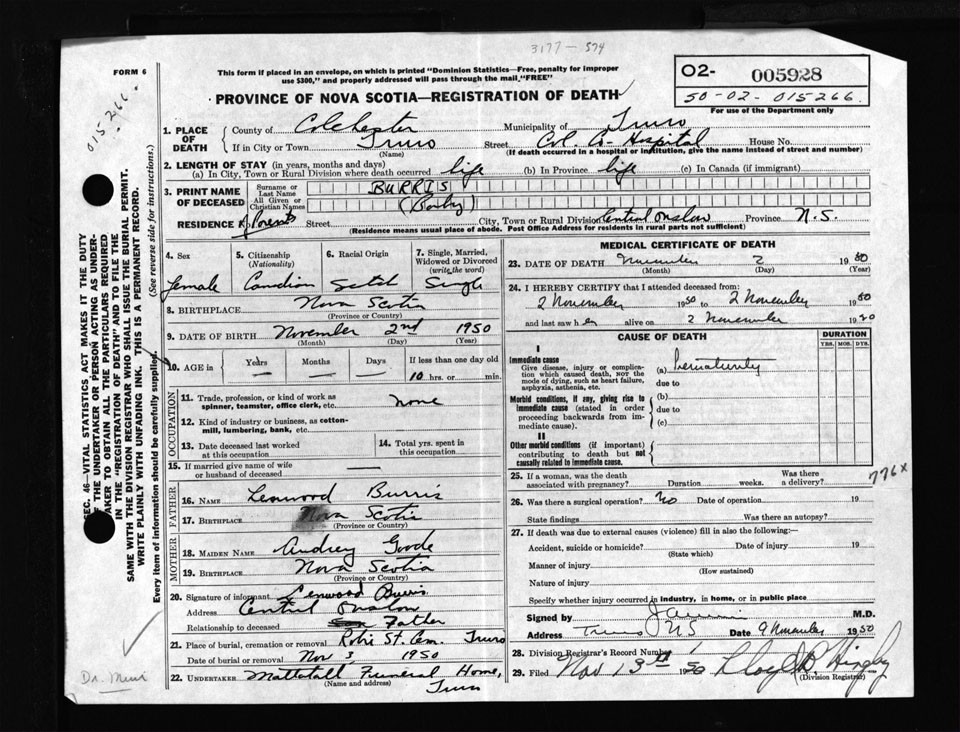 3177 - 574
FORM 6
This form if placed in an envelope, on which is printed "Dominion Statistics—Free, penalty for improper
use $300," and properly addressed will pass through the mail "FREE"
PROVINCE OF NOVA SCOTIA—REGISTRATION OF DEATH
O2- 005928
50-02-015266
For use of the Department only
015266
1. PLACE OF DEATH
County of Colchester Municipality of Truro
If in City or Town Truro Street Col. Co Hospital House No.
(Name) (If death occurred in a hospital or institution, give the name instead of street and number)
2. LENGTH OF STAY (in years, months and days)
(a) In City, Town or Rural Division where death occurred life (b) In Province life (c) In Canada (if immigrant)
3. PRINT NAME OF DECEASED
Surname or Last Name BURRIS
All Given or Christian Names (Baby)
RESIDENCE Parents Street City, Town or Rural Division Central Onslow Province N.S.
(Residence means usual place of abode. Post Office Address for residents in rural parts not sufficient)
4. Sex 5. Citizenship (Nationality) 6. Racial Origin 7. Single, Married, Widowed or Divorced (write the word)
female Canadian Scotch Single
8. BIRTHPLACE Nova Scotia
(Province or Country)
9. DATE OF BIRTH November 2nd 1950
(Month) (Day) (Year)
10. AGE in Years Months Days If less than one day old
— — — 10 hrs. or min.
OCCUPATION
11. Trade, profession, or kind of work as
spinner, teamster, office clerk, etc. none
12. Kind of industry or business, as cotton-
mill, lumbering, bank, etc.
13. Date deceased last worked
at this occupation
14. Total yrs. spent in
this occupation
15. If married give name of wife
or husband of deceased —
FATHER
16. Name Lenwood Burris
17. Birthplace Nova Scotia
(Province or Country)
MOTHER
18. MAIDEN NAME Audrey Goode
19. BIRTHPLACE Nova Scotia
(Province or Country)
20. Signature of informant Lenwood Burris
Address Central Onslow
Relationship to deceased Father
21. Place of burial, cremation or removal Robie St. Cem. Truro
Date of burial or removal Nov 3, 1950
22. UNDERTAKER Mattatall Funeral Home,
(Name and address) Truro
MEDICAL CERTIFICATE OF DEATH
23. DATE OF DEATH November 2 1950
(Month) (Day) (Year)
24. I HEREBY CERTIFY that I attended deceased from:
2 November 1950 to 2 November 1950
and last saw her alive on 2 November 1950
CAUSE OF DEATH DURATION
YRS. MOS. DYS.
I
Immediate cause
Give disease, injury or complica-
tion which caused death, NOT the
mode of dying, such as heart failure,
asphyxia, asthenia, etc.
(a) Prematurity
due to
Morbid conditions, if any, giving rise to
immediate cause (stated in order
proceeding backwards from im-
mediate cause).
(b)
due to
(c)
II
Other morbid conditions (if important)
contributing to death but not
causally related to immediate cause.
25. If a woman, was the death
associated with pregnancy? Duration weeks. Was there a delivery?
776X
26. Was there a surgical operation? no Date of operation 19
State findings Was there an autopsy?
27. If death was due to external causes (violence) fill in also the following:
Accident, suicide or homicide? Date of injury 19
(State which)
Manner of injury
(How sustained)
Nature of injury
Specify whether injury occurred in industry, in home, or in public place
Signed by M.D.
Address Truro NS Date 9 November 1950
28. Division Registrar's Record Number
29. Filed Nov 13th 1950 Lloyd
(Division Registrar)
SEC. 46—VITAL STATISTICS ACT MAKES IT THE DUTY
OF THE UNDERTAKER OR PERSON ACTING AS UNDER-
TAKER TO OBTAIN ALL THE PARTICULARS REQUIRED
IN THE "REGISTRATION OF DEATH" AND TO FILE THE
SAME WITH THE DIVISION REGISTRAR WHO SHALL ISSUE THE BURIAL PERMIT.
WRITE PLAINLY WITH UNFADING INK. THIS IS A PERMANENT RECORD.
Every item of information should be carefully supplied. (See reverse side for instructions.)